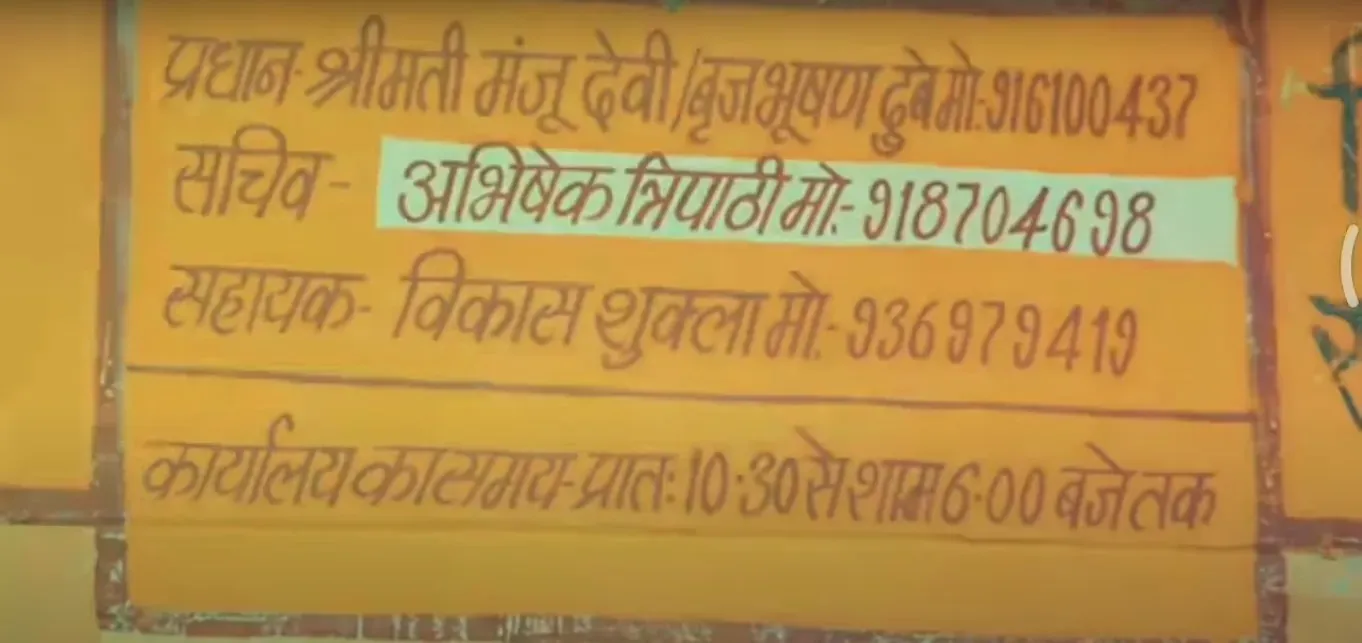 प्रधान- श्रीमती मंजू देवी/बृजभूषण दुबे मो:-916100437
सचिव- अभिषेक त्रिपाठी मो:-918704698
सहायक- विकास शुक्ला मो:-936979419
कार्यालय का समय-प्रातः 10:30 से शाम 6:00 बजे तक